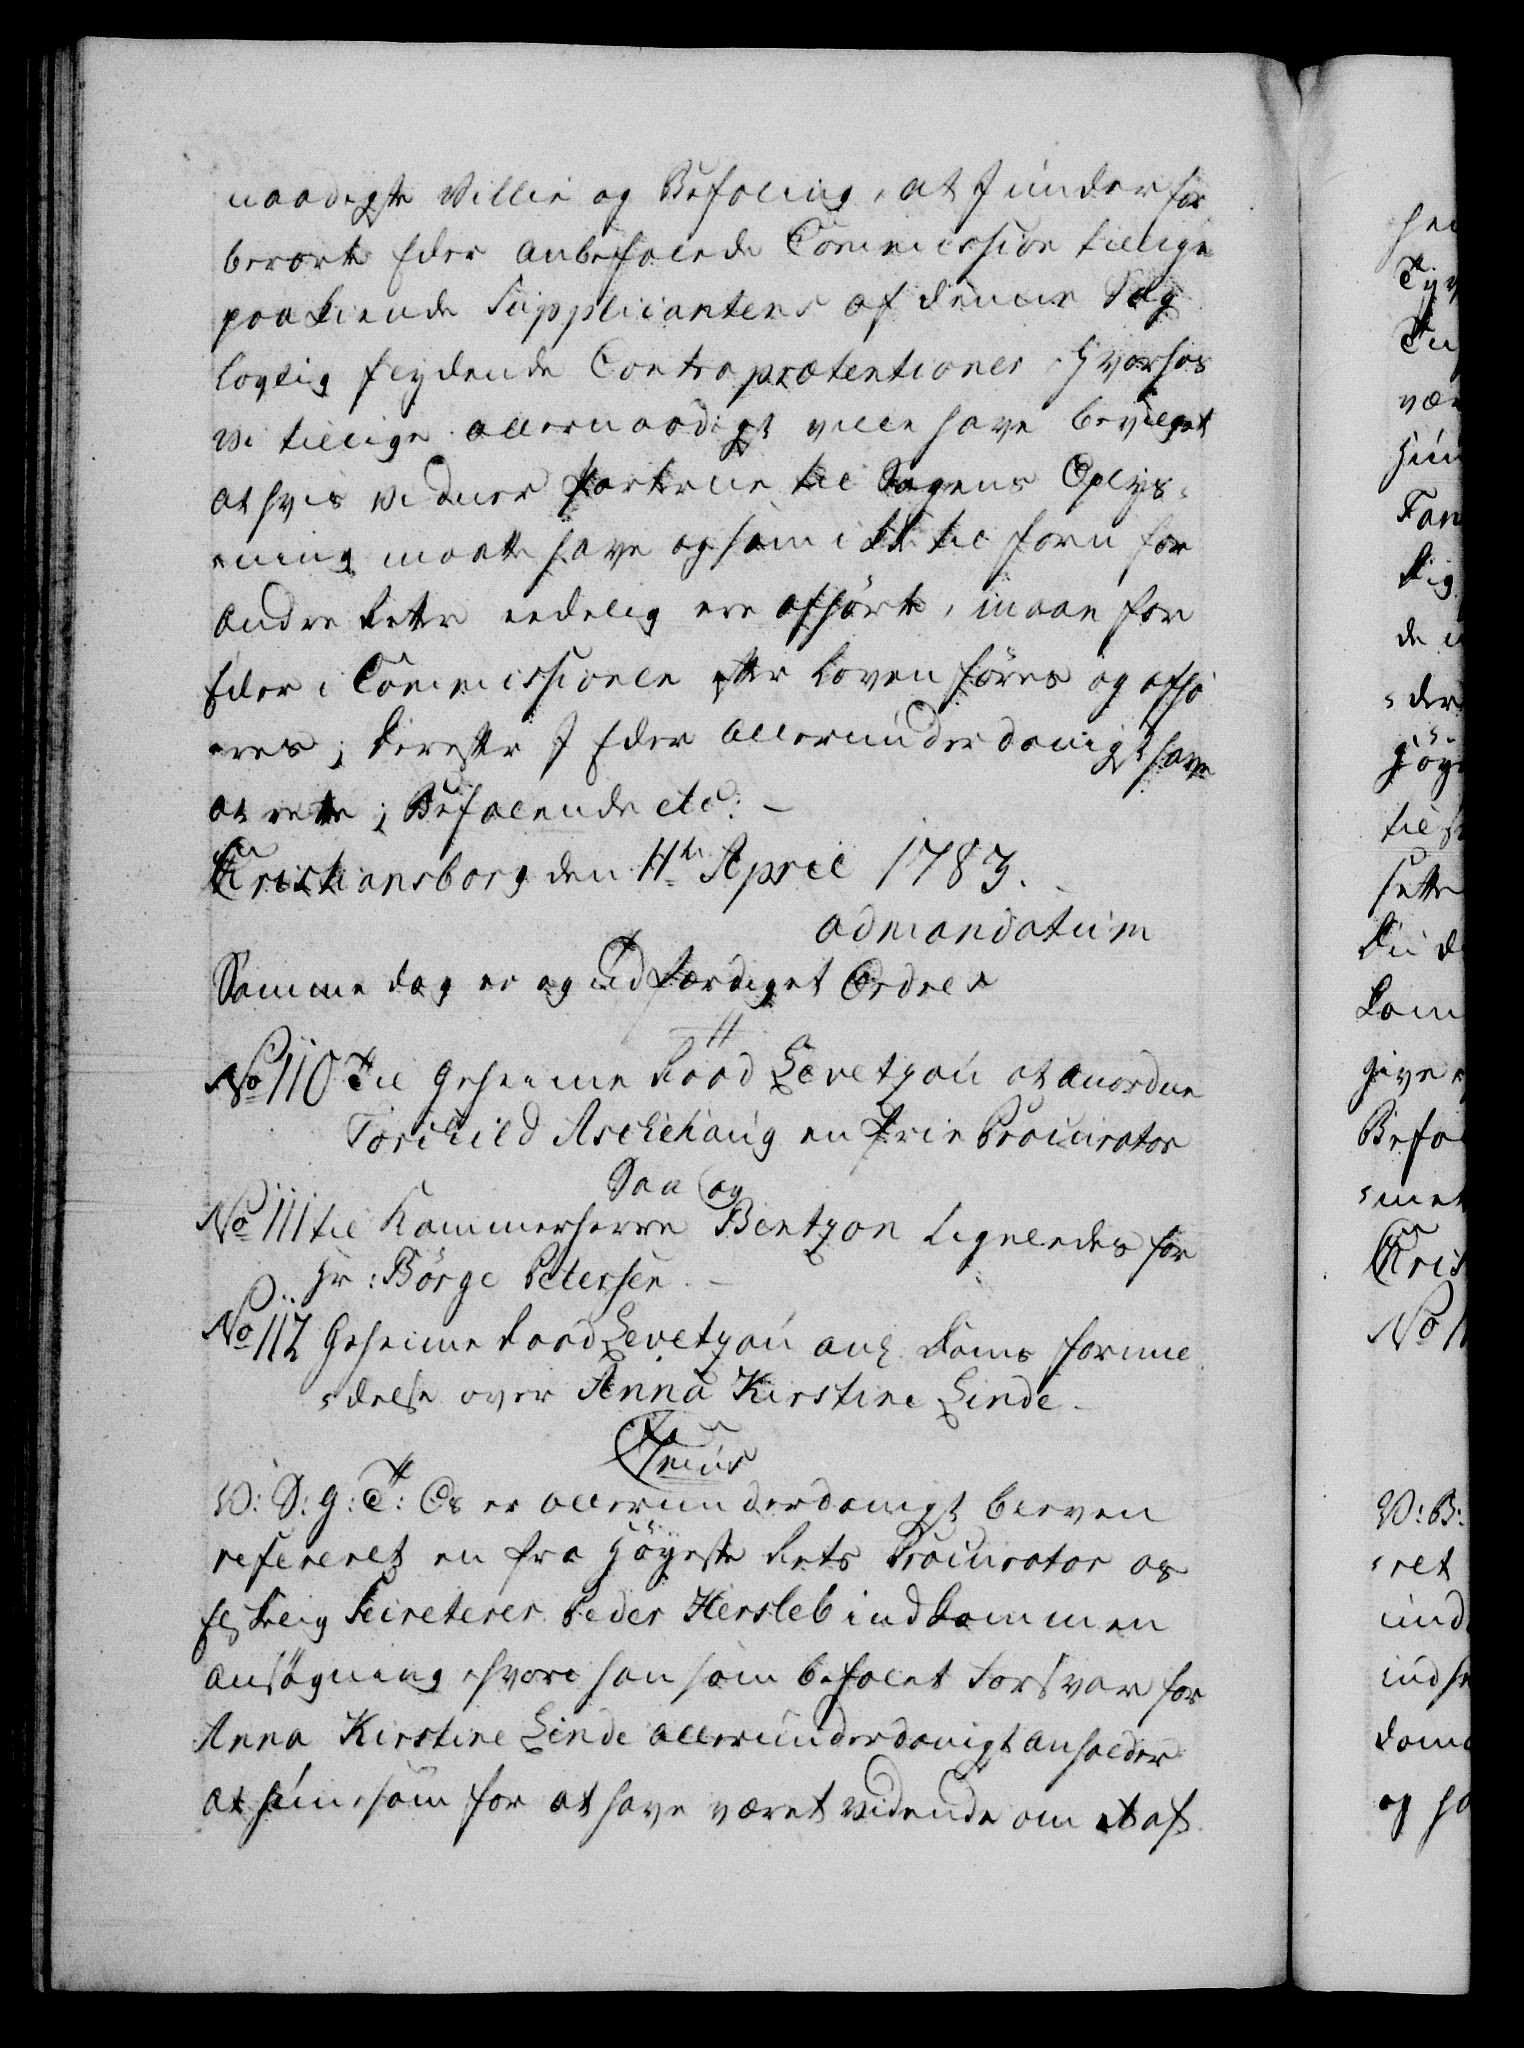 naadigste Villie og Befaling, at I under for
berørte Eder anbefalede Commission tillige
paakiende Supplicantens af denne Sag
lovlig flydende Contraprætentioner, hvorhos
vi tillige allernaadigst ville have bevilget
at hvis Vidner Parterne til Sagens Oplys-
-ning maatte have og som ikke tilforn for
andre Retter eedelig ere afhørte, maae for
Eder i Commissionen efter Loven føres og afhø
-res; Derefter I Eder allerunderdanigst have
at rette; Befalende etc: -
Christiansborg den 4de April 1783.
ad mandatum
Samme dag er og udfærdiget Ordre
No 110 Til Geheime Raad Levetzau at anordne
Torchild Aschehaug en frie Procurator
Saa og
No 111 til Kammerherre Bentzon ligeledes for
Hr: Börge Petersen. -
No 112 Geheime Raad Levetzau ang. Doms formil
-delse over Anna Kirstine Linde -
V: S: G: T: Os er allerunderdanigst bleven
refereret en fra Höyeste Rets Procurator og
Secreterer Peder Hersleb indkommen
Ansøgning, hvori han som befalet Forsvar for
Anna Kirstine Linde allerunderdanigst anholder
at hun, som for at have været vidende om et af